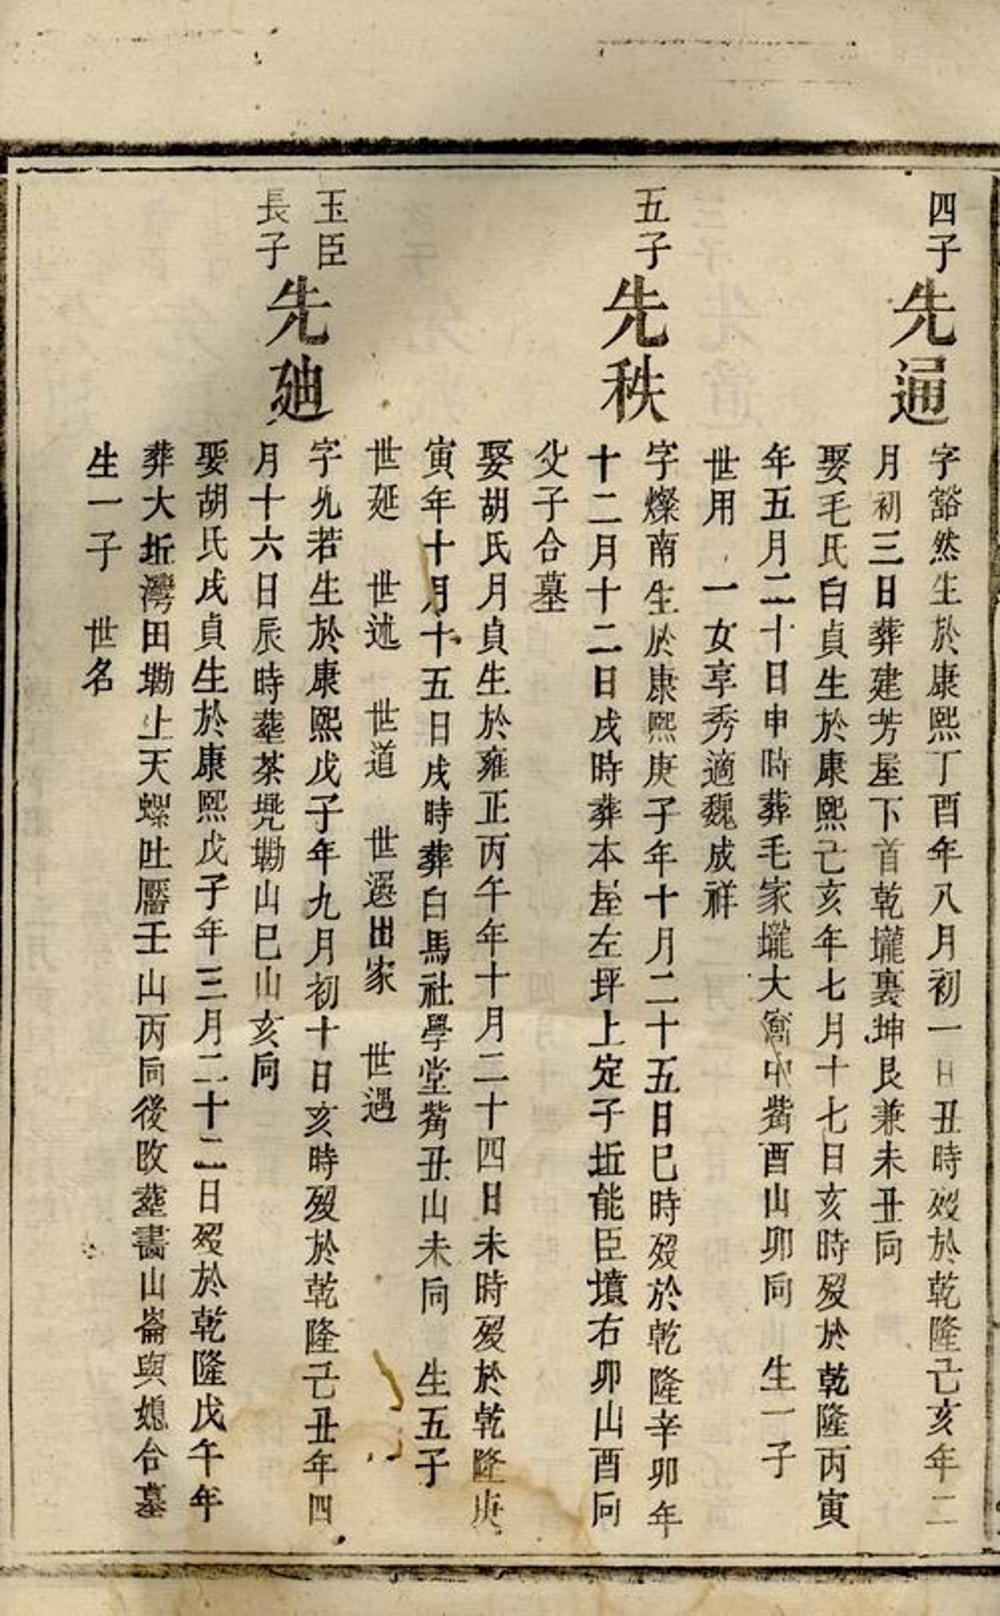 四子
先通
字豁然生於康熙丁酉年八月初一日丑時歿於乾隆己亥年二
月初三日葬建芳屋下首乾壠裏坤艮兼未丑向
娶毛氏白貞生於康熙己亥年七月十七日亥時歿於乾隆丙寅
年五月二十日申時葬毛家壠大窩中觜酉山卯向 生一子
世用 一女享秀適魏成祥
五子
先秩
字燦南生於康熙庚子年十月二十五日巳時歿於乾隆辛卯年
十二月十二日戌時葬本屋左坪上定子坵能臣墳右卯山酉向
父子合墓
娶胡氏月貞生於雍正丙午年十月二十四日未時歿於乾隆庚
寅年十月十五日戌時葬白馬社學堂觜丑山未向 生五子
世延 世述 世道 世選出家 世遇
玉臣
長子
先廸
字兆若生於康熙戊子年九月初十日亥時歿於乾隆己丑年四
月十六日辰時塟茶凳塝山巳山亥向
娶胡氏戌貞生於康熙戊子年三月二十二日歿於乾隆戊午年
葬大坵灣田塝上天螺吐靨壬山丙向後改塟書山崙與媳合墓
生一子 世名